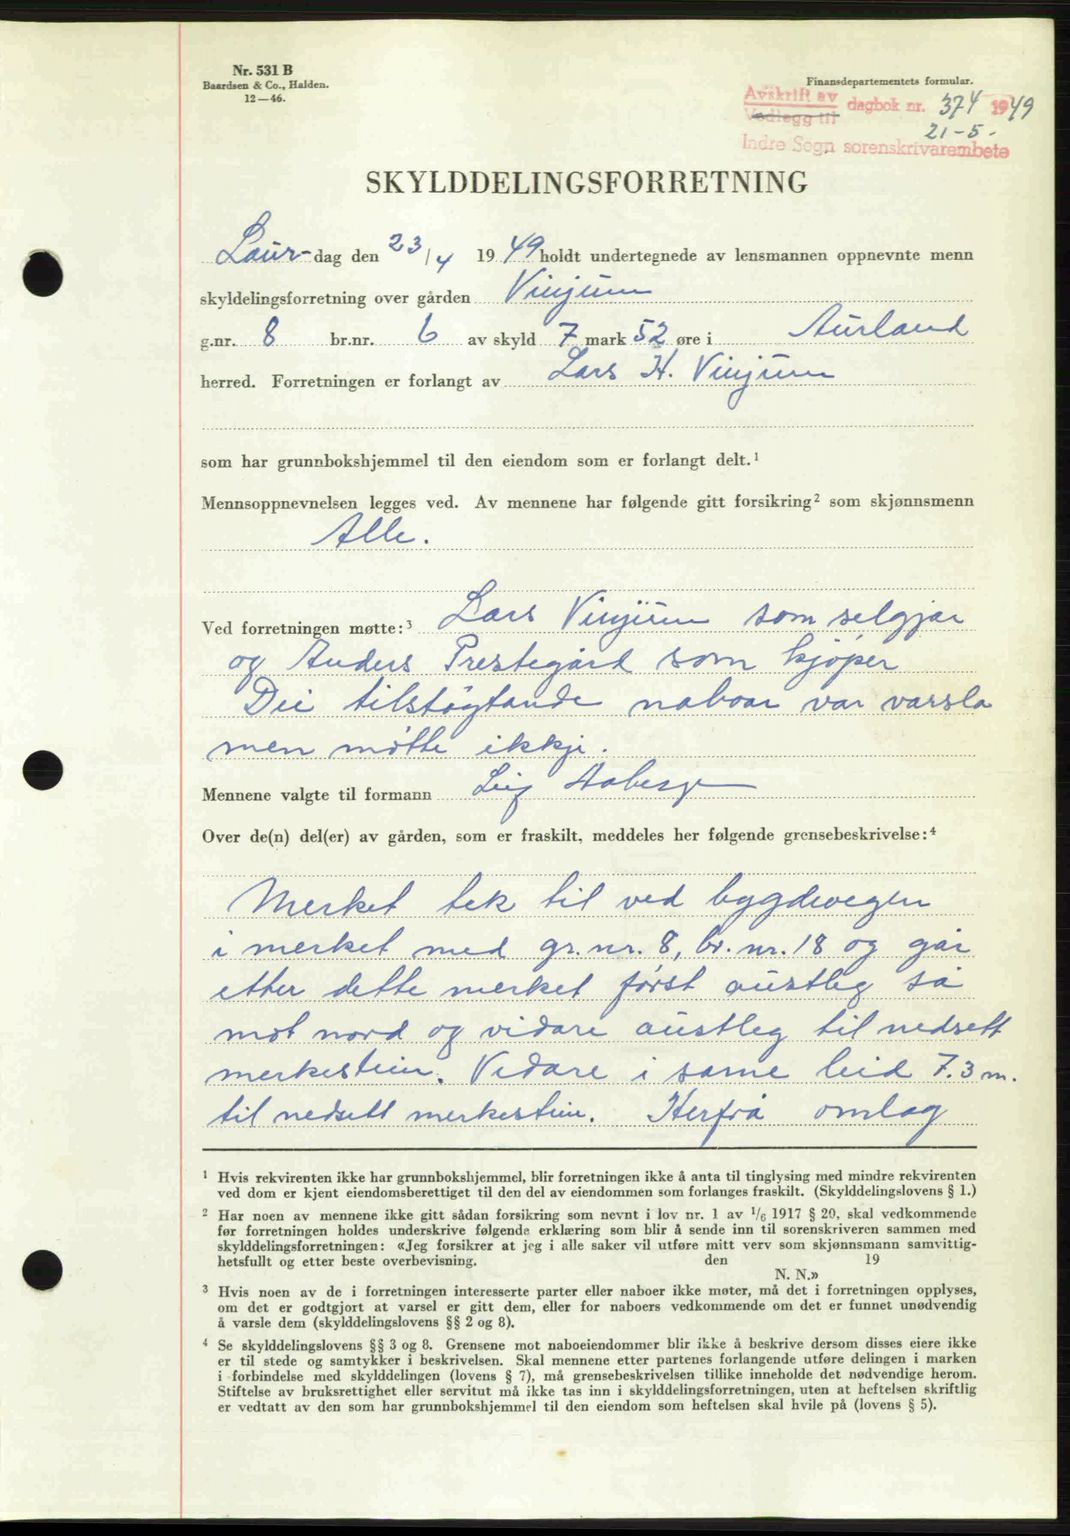 Nr. 531 B
Baardsen & Co., Halden.
12—46.
Finansdepartementets formular.
Avskrift av
Vedlegg til
dagbok nr. 374 1949
21-5-
Indre Sogn sorenskrivarembete
SKYLDDELINGSFORRETNING
Laur-dag den 23/4 1949 holdt undertegnede av lensmannen oppnevnte menn
skyldelingsforretning over gården Vinjum
g.nr. 8 br.nr. 6 av skyld 7 mark 52 øre i Aurland
herred. Forretningen er forlangt av Lars H. Vinjum
som har grunnbokshjemmel til den eiendom som er forlangt delt.¹
Mennsoppnevnelsen legges ved. Av mennene har følgende gitt forsikring² som skjønnsmenn
Alle.
Ved forretningen møtte:³ Lars Vinjum som selgjar
og Anders Prestegård som kjøper
Dei tilstøytande naboar var varsla
men møtte ikkje.
Mennene valgte til formann Leif Aaberge
Over de(n) del(er) av gården, som er fraskilt, meddeles her følgende grensebeskrivelse:⁴
Merket tek til ved bygdevegen
i merket med gr. nr. 8, br. nr. 18 og går
etter dette merket først austleg så
mot nord og vidare austleg til nedsett
merkestein. Vidare i same leid 7.3 m.
til nedsett merkestein. Herfrå omlag
¹ Hvis rekvirenten ikke har grunnbokshjemmel, blir forretningen ikke å anta til tinglysing med mindre rekvirenten
ved dom er kjent eiendomsberettiget til den del av eiendommen som forlanges fraskilt. (Skylddelingslovens § 1.)
² Har noen av mennene ikke gitt sådan forsikring som nevnt i lov nr. 1 av 1/6 1917 § 20, skal vedkommende
før forretningen holdes underskrive følgende erklæring som blir å sende inn til sorenskriveren sammen med
skylddelingsforretningen: «Jeg forsikrer at jeg i alle saker vil utføre mitt verv som skjønnsmann samvittig-
hetsfullt og etter beste overbevisning. den 19
N. N.»
³ Hvis noen av de i forretningen interesserte parter eller naboer ikke møter, må det i forretningen opplyses,
om det er godtgjort at varsel er gitt dem, eller for naboers vedkommende om det er funnet unødvendig
å varsle dem (skylddelingslovens §§ 2 og 8).
⁴ Se skylddelingslovens §§ 3 og 8. Grensene mot naboeiendommer blir ikke å beskrive dersom disses eiere ikke
er til stede og samtykker i beskrivelsen. Skal mennene etter partenes forlangende utføre delingen i marken
i forbindelse med skylddelingen (lovens § 7), må grensebeskrivelsen tillike inneholde det nødvendige herom.
Stiftelse av bruksrettighet eller servitut må ikke tas inn i skylddelingsforretningen, uten at heftelsen skriftlig
er vedtatt av den som har grunnbokshjemmel til den eiendom som heftelsen skal hvile på (lovens § 5).